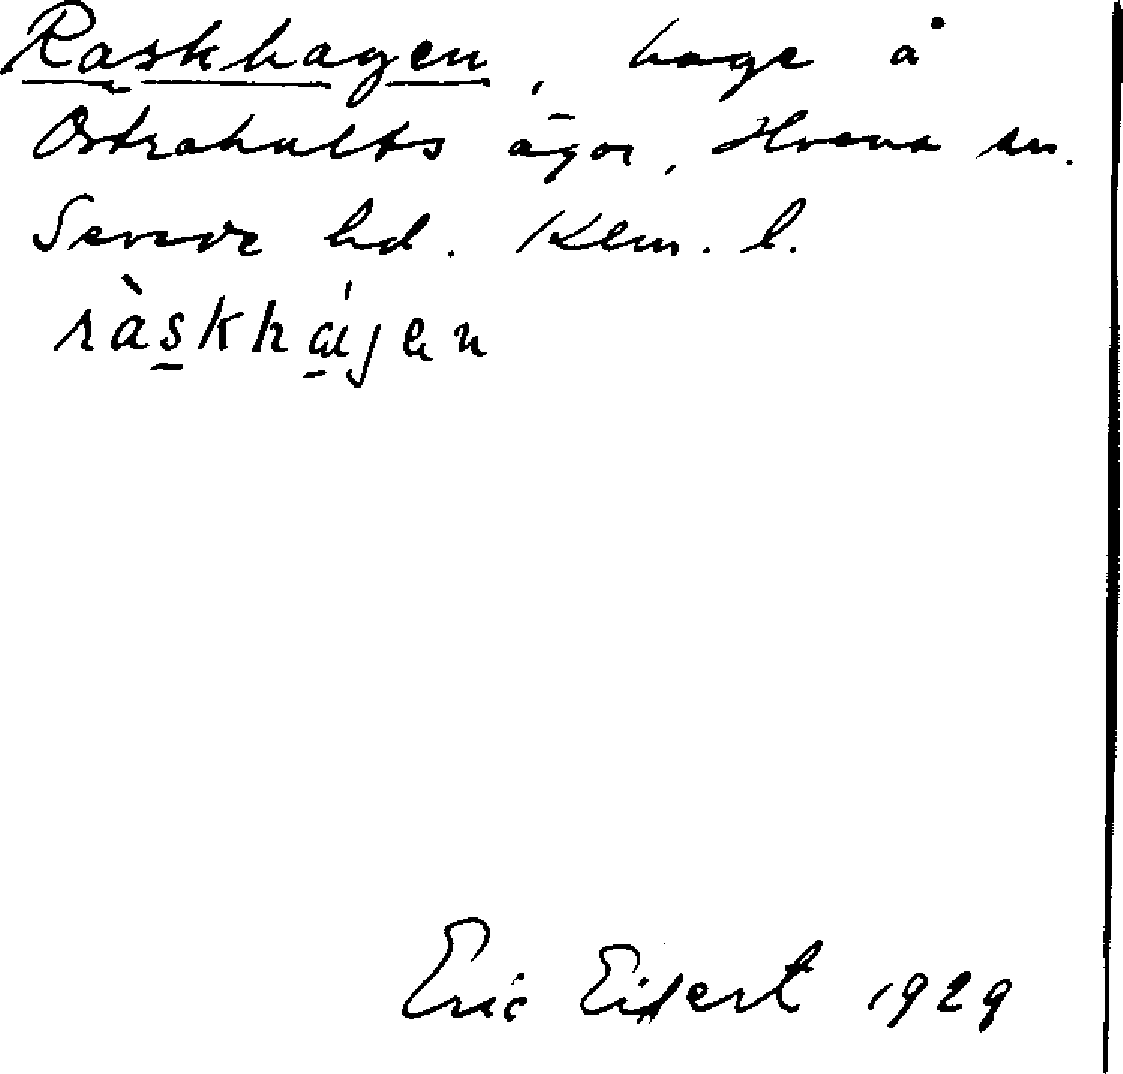 Raskhagen, hage å
Östrahults ägor, Hvena sn.
Sevede hd. Klm. l.
ràskhájen
Eric Eifert 1929